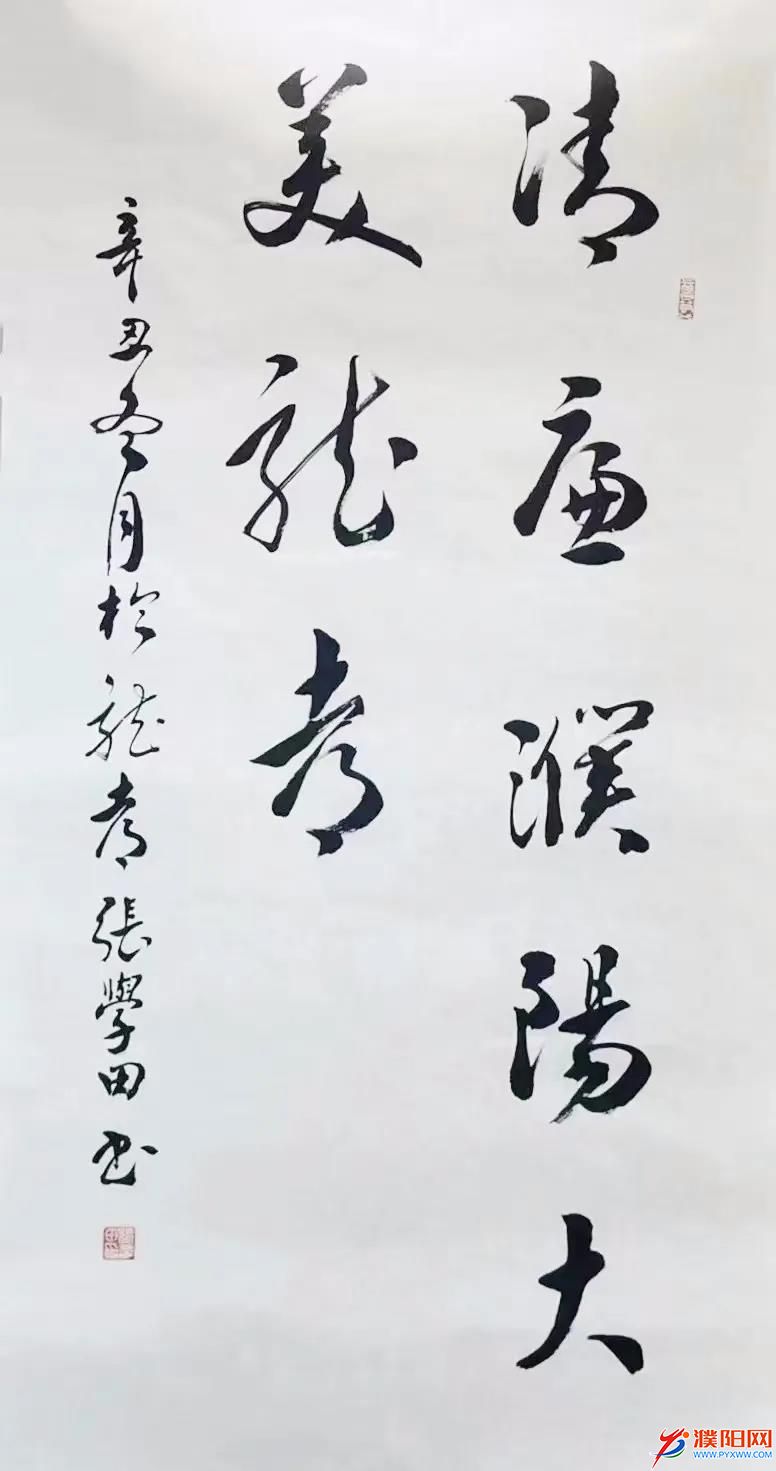 清廉濮陽大
美龍都
辛丑冬月於龍都張學田書
濮阳网
WWW.PYXWW.COM